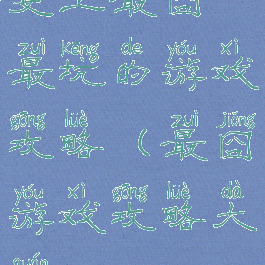 zuì kēng de yóu xì
最坑的游戏
gōng lüè zuì jiǒng
攻略(最囧
yóu xì gōng lüè dà
游戏攻略大